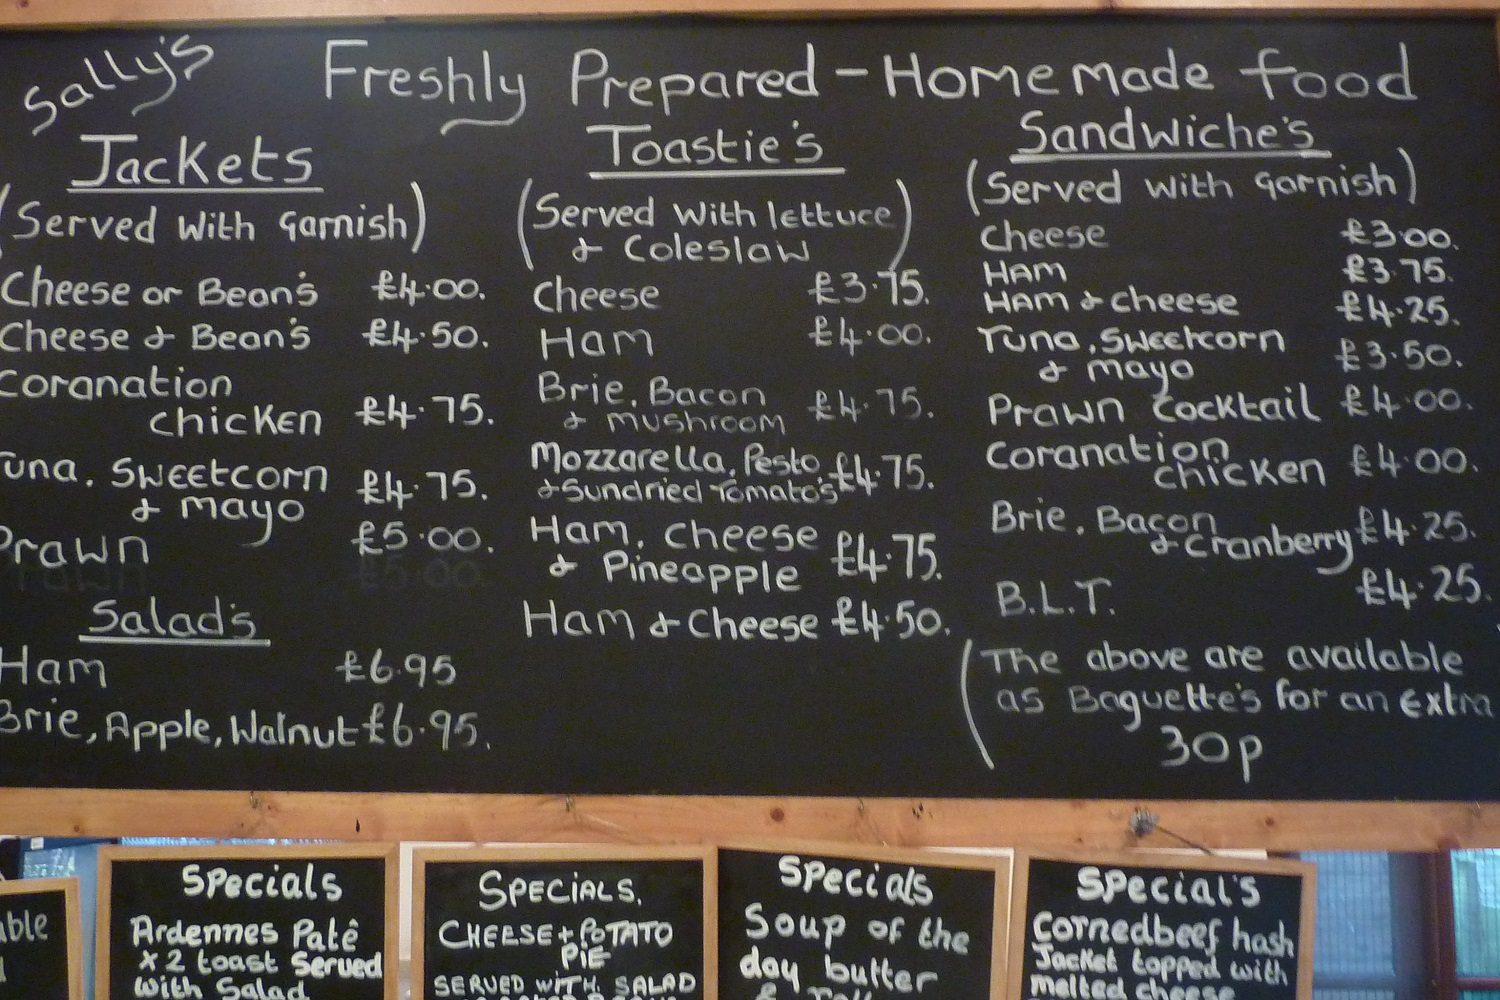 Sally's Freshly Prepared - Homemade food
Jackets
(Served With Garnish)
Cheese or Bean's £4.00.
Cheese & Bean's £4.50.
Coranation
chicken £4.75.
Tuna, Sweetcorn
& mayo £4.75.
Prawn £5.00.
Salad's
Ham £6.95
Brie, Apple, Walnut £6.95.
Toastie's
(Served With lettuce
& Coleslaw)
Cheese £3.75.
Ham £4.00.
Brie, Bacon
& mushroom £4.75.
Mozzarella, Pesto
& Sundried Tomato's £4.75.
Ham, cheese
& Pineapple £4.75.
Ham & Cheese £4.50.
Sandwiche's
(Served with Garnish)
Cheese £3.00.
Ham £3.75.
Ham & cheese £4.25.
Tuna, Sweetcorn
& mayo £3.50.
Prawn Cocktail £4.00.
Coranation
chicken £4.00.
Brie, Bacon
& Cranberry £4.25.
B.L.T. £4.25.
(The above are available
as Baguette's for an extra
30p
Specials
Ardennes Patê
x 2 toast Served
with Salad
SPECiALS.
CHEESE + POTATO
PiE
SERVED WITH SALAD
Specials
Soup of the
day butter
Special's
Cornedbeef hash
Jacket topped with
melted cheese